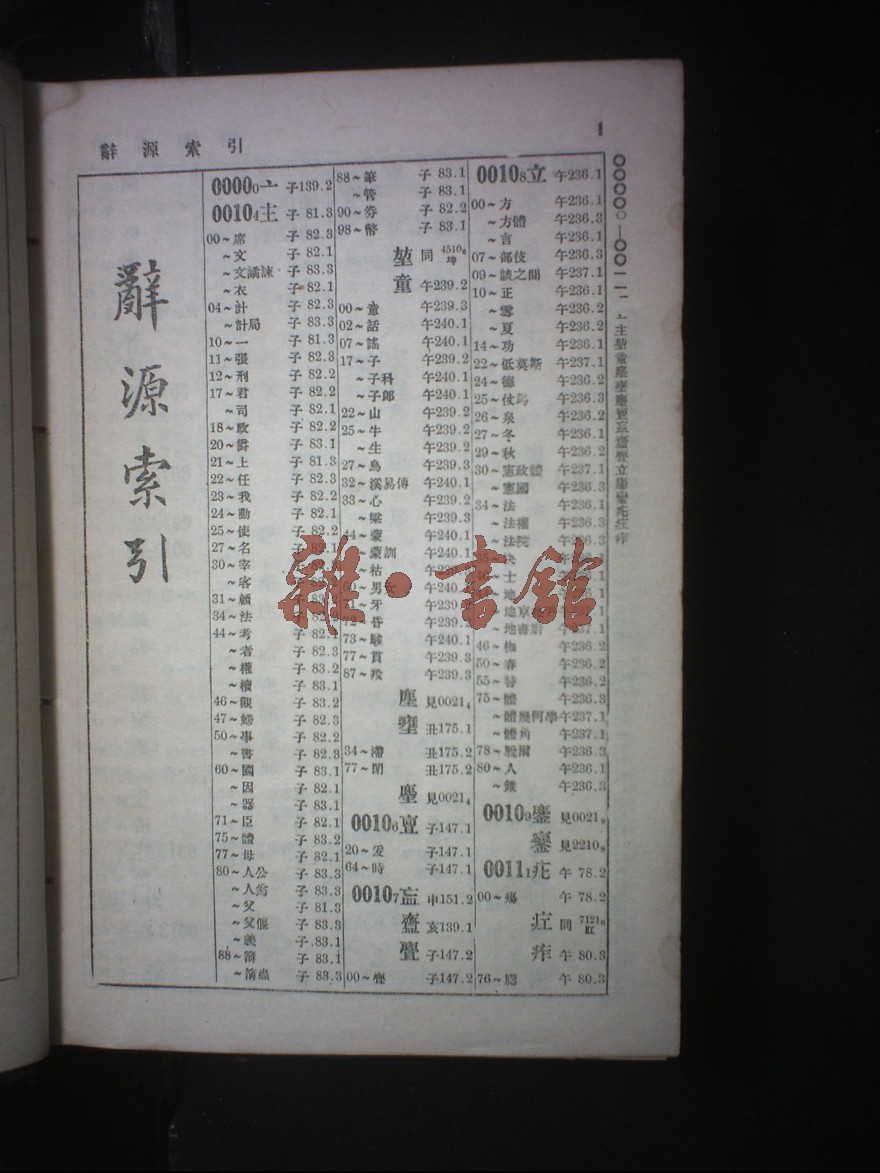 辭源索引
1
辭源索引
0000₀亠 子139.2
0010₄主 子 81.3
00~席 子 82.3
~文 子 82.1
~文譎諫 子 83.3
~衣 子 82.1
04~計 子 82.3
~計局 子 83.3
10~一 子 81.3
11~張 子 82.3
12~刑 子 82.2
17~君 子 82.2
~司 子 82.1
18~政 子 82.2
20~爵 子 83.1
21~上 子 81.3
22~任 子 82.3
23~我 子 82.2
24~動 子 82.1
25~使 子 82.2
27~名
30~宰
~客
31~顧
34~法
44~考 子 82.1
~者 子 82.3
~權 子 83.2
~櫝 子 83.1
46~觀 子 83.2
47~婦 子 82.3
50~事 子 82.2
~書 子 82.3
60~國 子 83.1
~因 子 82.1
~器 子 83.1
71~臣 子 82.1
75~體 子 83.2
77~母 子 82.1
80~人公 子 83.3
~人翁 子 83.3
~父 子 81.3
~父偃 子 83.3
~義 子 83.1
88~簿 子 83.1
~簿蟲 子 83.3
88~筆 子 83.1
~管 子 83.1
90~券 子 82.2
98~幣 子 83.1
堃 同 4510₆坤
童 午239.2
00~童 午239.3
02~話 午240.1
07~謠 午240.1
17~子 午239.2
~子科 午240.1
~子郎 午240.1
22~山 午239.2
25~牛 午239.2
~生 午239.2
27~烏 午239.3
32~溪易傳 午240.1
33~心 午239.2
~梁 午239.3
44~蒙 午240.1
~蒙訓 午240.1
~枯
60~男女 午240.
71~牙 午239.
72~昏 午239.
73~騃 午240.1
77~貫 午239.3
87~羖 午239.3
塵 見0021₄
壅 丑175.1
34~滯 丑175.2
77~閉 丑175.2
廛 見0021₄
0010₆亶 子147.1
20~爰 子147.1
64~時 子147.1
0010₇盳 申151.2
齏 亥139.1
亹 子147.2
00~亹 子147.2
0010₈立 午236.1
00~方 午236.1
~方體 午236.3
~言 午236.1
07~部伎 午236.3
09~談之間 午237.1
10~正 午236.1
~雪 午236.2
~夏 午236.2
14~功 午236.1
22~低莫斯 午237.1
24~德 午236.2
25~仗馬 午236.3
26~泉 午236.2
27~冬 午236.1
29~秋 午236.2
30~憲政體 午237.1
~憲國 午236.3
34~法 午236.1
~法權 午236.3
~法院 午236.3
35~決
40~士
~地
~地書廚
46~枷 午236.2
50~春 午236.2
55~替 午236.2
75~體 午236.3
~體幾何學 午237.1
~體角 午237.1
78~騐爾 午236.3
80~人 午236.1
~錐 午236.3
0010₉鏖 見0021₉
鑾 見2210₉
0011₁疕 午 78.2
00~瘍 午 78.2
疘 同 7121₀肛
痄 午 80.3
76~腮 午 80.3
雜·書館